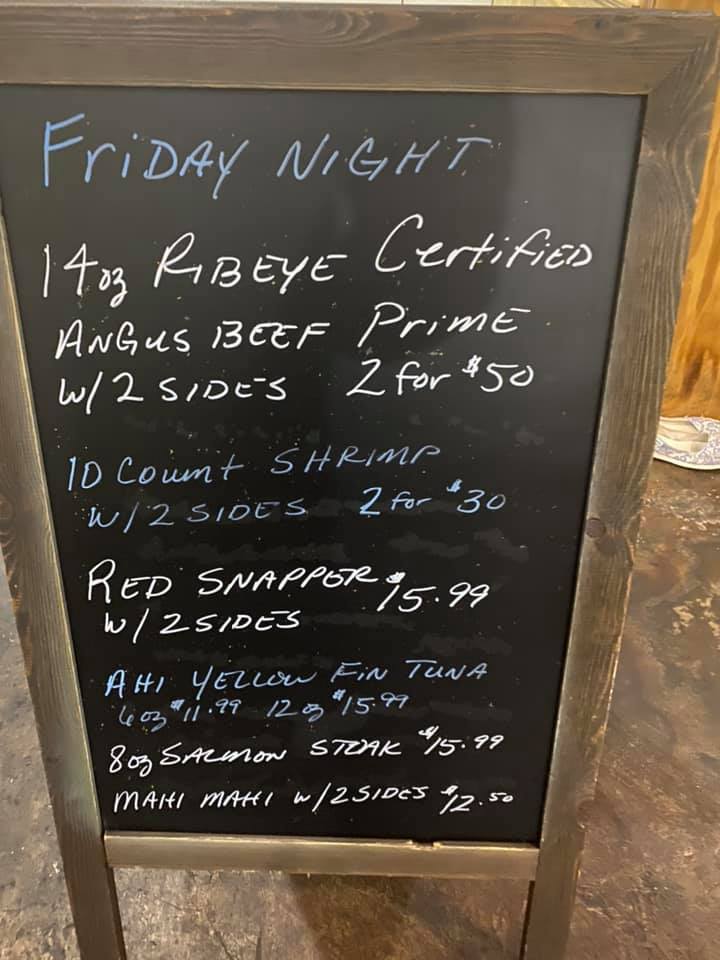 FRIDAY NIGHT
14oz RIBEYE Certified
ANGUS BEEF Prime
W/2 SIDES 2 for $50
10 Count SHRIMP
W/2 SIDES 2 for $30
RED SNAPPER $15.99
W/2 SIDES
AHI YELLOW FIN TUNA
6oz $11.99 12oz $15.99
8oz SALMON STEAK $15.99
MAHI MAHI W/2 SIDES $12.50